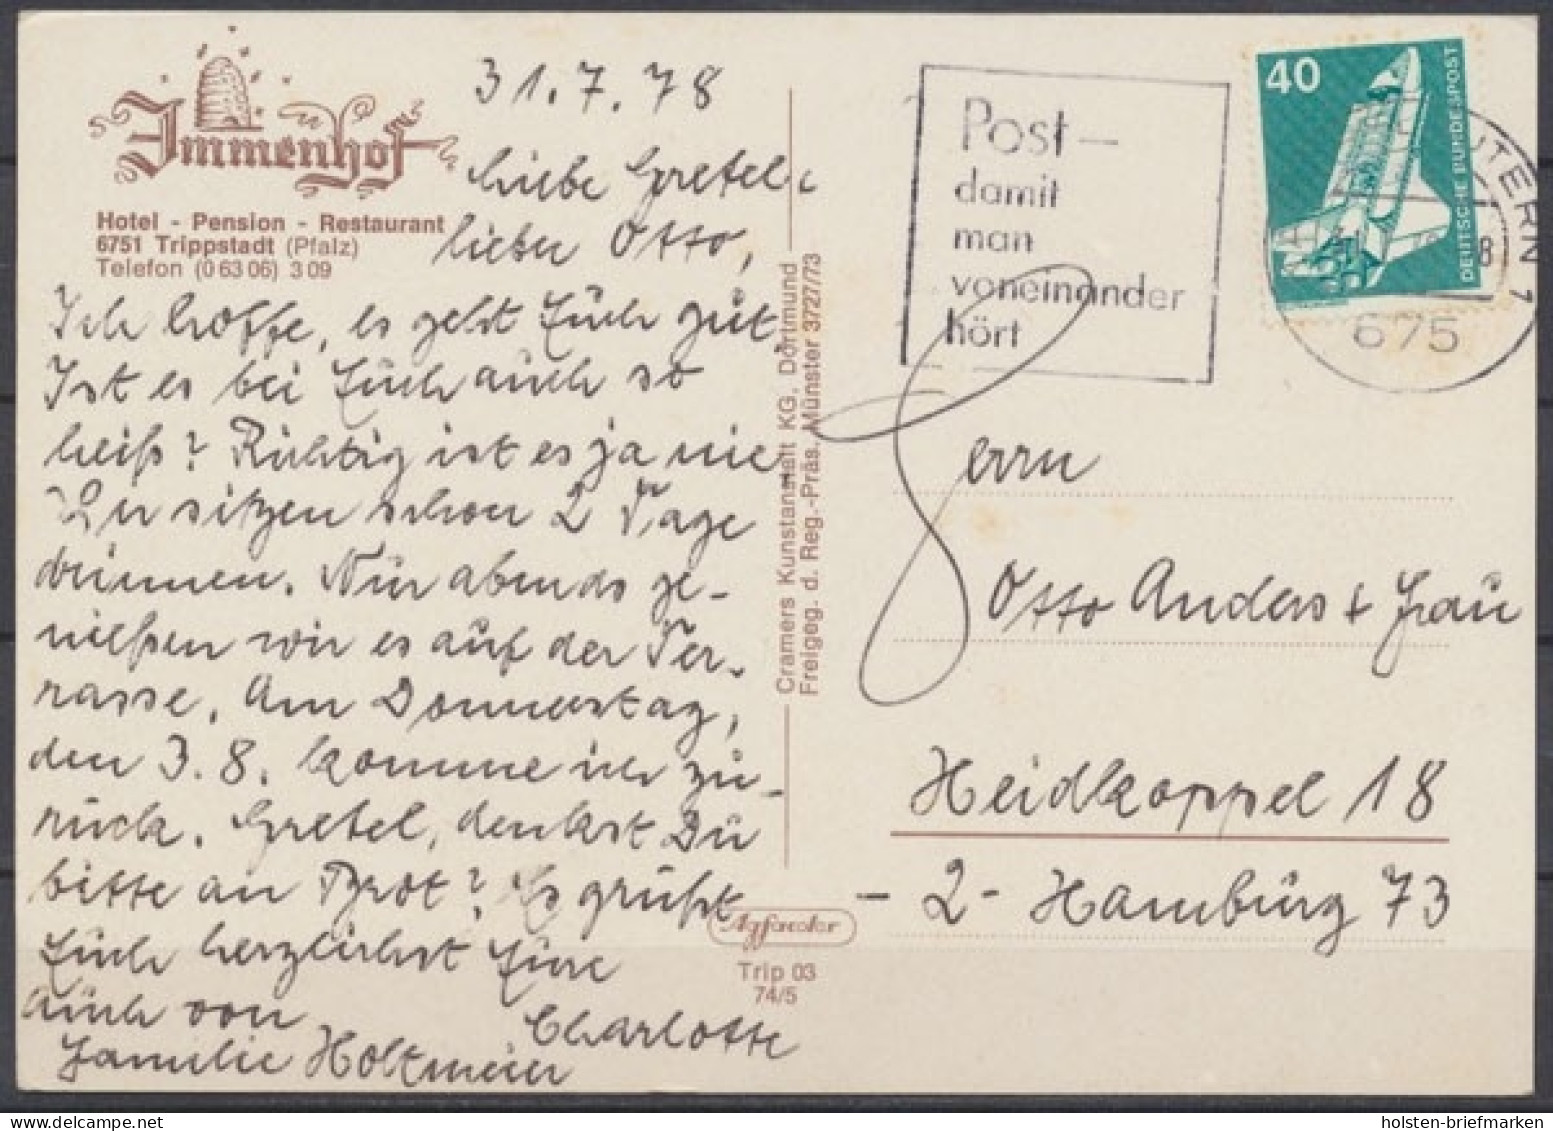 Immenhof
Hotel - Pension - Restaurant
6751 Trippstadt (Pfalz)
Telefon (0 63 06) 3 09
31.7.78
Liebe Gretel,
lieber Otto,
Ich hoffe, es geht Euch gut.
Ist es bei Euch auch so
heiß? Richtig ist es ja nie
Wir sitzen schon 2 Tage
drinnen. Nur abends ge-
nießen wir es auf der Ter-
rasse. Am Donnerstag,
den 3.8. komme ich zu-
rück. Gretel, denkst Du
bitte an Brot? Es grüßt
Euch herzlichst Eure
Charlotte
Auch von
Familie Holtmeier
Cramers Kunstanstalt KG, Dortmund
Freigeg. d. Reg.-Präs. Münster 3727/73
Agfacolor
Trip 03
74/5
Post –
damit
man
voneinander
hört
40
DEUTSCHE BUNDESPOST
UTERN 1
675
Herrn
Otto Anders + Frau
Heidkoppel 18
- 2 - Hamburg 73
holsten-briefmarken